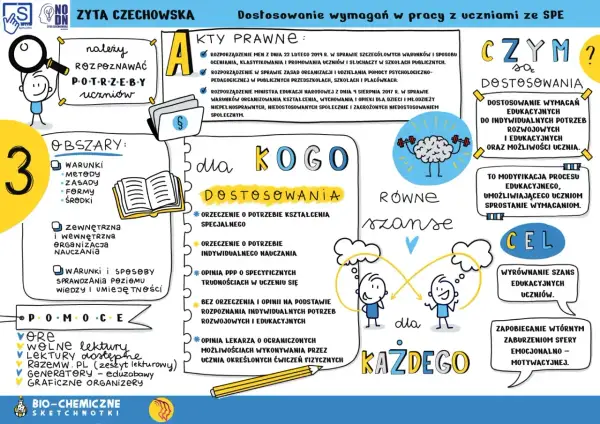 S
NO
DN
ZYTA CZECHOWSKA
Dostosowanie wymagań w pracy z uczniami ze SPE
należy
ROZPOZNAWAĆ
P·O·T·R·Z·E·B·Y
uczniów
AKTY PRAWNE:
ROZPORZĄDZENIE MEN Z DNIA 22 LUTEGO 2019 R. W SPRAWIE SZCZEGÓŁOWYCH WARUNKÓW I SPOSOBU
OCENIANIA, KLASYFIKOWANIA I PROMOWANIA UCZNIÓW I SŁUCHACZY W SZKOŁACH PUBLICZNYCH.
ROZPORZĄDZENIE W SPRAWIE ZASAD ORGANIZACJI I UDZIELANIA POMOCY PSYCHOLOGICZNO-
PEDAGOGICZNEJ W PUBLICZNYCH PRZEDSZKOLACH, SZKOŁACH I PLACÓWKACH.
ROZPORZĄDZENIE MINISTRA EDUKACJI NARODOWEJ Z DNIA 9 SIERPNIA 2017 R. W SPRAWIE
WARUNKÓW ORGANIZOWANIA KSZTAŁCENIA, WYCHOWANIA I OPIEKI DLA DZIECI I MŁODZIEŻY
NIEPEŁNOSPRAWNYCH, NIEDOSTOSOWANYCH SPOŁECZNIE I ZAGROŻONYCH NIEDOSTOSOWANIEM
SPOŁECZNYM.
CZYM
są
?
DOSTOSOWANIA
DOSTOSOWANIE WYMAGAŃ
EDUKACYJNYCH
DO INDYWIDUALNYCH POTRZEB
ROZWOJOWYCH
I EDUKACYJNYCH
ORAZ MOŻLIWOŚCI UCZNIA.
TO MODYFIKACJA PROCESU
EDUKACYJNEGO,
UMOŻLIWIAJĄCEGO UCZNIOM
SPROSTANIE WYMAGANIOM.
CEL
WYRÓWNANIE SZANS
EDUKACYJNYCH
UCZNIÓW.
ZAPOBIEGANIE WTÓRNYM
ZABURZENIOM SFERY
EMOCJONALNO –
MOTYWACYJNEJ.
3
OBSZARY:
WARUNKI
·METODY
·ZASADY
·FORMY
·ŚRODKI
ZEWNĘTRZNA
i WEWNĘTRZNA
ORGANIZACJA
NAUCZANIA
WARUNKI i SPOSOBY
SPRAWDZANIA POZIOMU
WIEDZY I UMIEJĘTNOŚCI
§
dla KOGO
DOSTOSOWANIA
ORZECZENIE O POTRZEBIE KSZTAŁCENIA
SPECJALNEGO
ORZECZENIE O POTRZEBIE
INDYWIDUALNEGO NAUCZANIA
OPINIA PPP O SPECYFICZNYCH
TRUDNOŚCIACH W UCZENIU SIĘ
BEZ ORZECZENIA I OPINII NA PODSTAWIE
ROZPOZNANIA INDYWIDUALNYCH POTRZEB
ROZWOJOWYCH I EDUKACYJNYCH
OPINIA LEKARZA O OGRANICZONYCH
MOŻLIWOŚCIACH WYKONYWANIA PRZEZ
UCZNIA OKREŚLONYCH ĆWICZEŃ FIZYCZNYCH
RÓWNE
szanse
dla
KAŻDEGO
P·O·M·O·C·E
ORE
WOLNE lektury
LEKTURY dostępne
RAZEMW.PL (zeszyt lekturowy)
GENERATORY – eduzabawy
GRAFICZNE ORGANIZERY
BIO-CHEMICZNE
SKETCHNOTKI